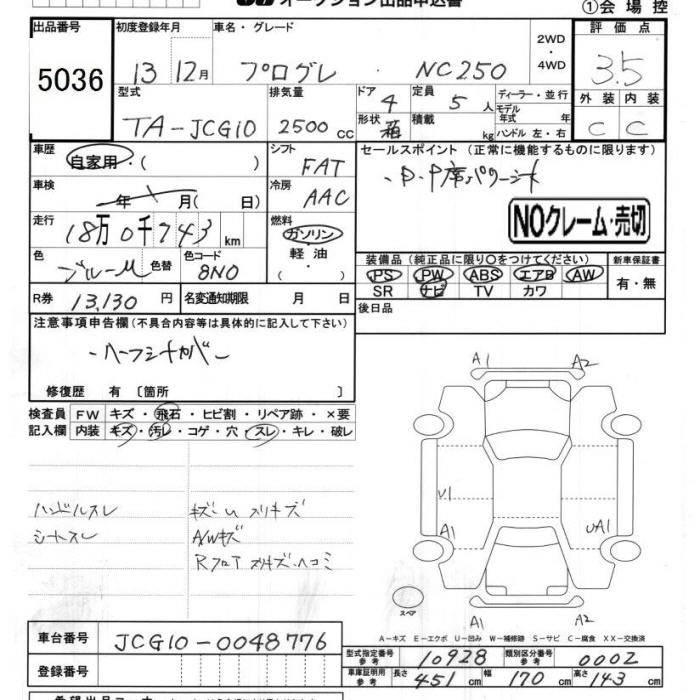 オークション出品申込書
①会場控
出品番号 初度登録年月 車名・グレード 2WD・4WD 評価点
5036 13 12月 プログレ NC250 3.5
型式 排気量 ドア 4 定員 5人 ディーラー・並行 外装 内装
TA-JCG10 2500cc 形状 箱 積載 kg モデル年式 年 ハンドル 左・右 C C
車歴 自家用・( ) シフト FAT セールスポイント (正常に機能するものに限ります)
車検 年 月(日) 冷房 AAC ・D・P席パワーシート
走行 18万0千743km 燃料 ガソリン・軽油・ NOクレーム・売切
色 ブルーM 色替 色コード 8N0 装備品(純正品に限り○をつけてください) 新車保証書
PS PW ABS エアB AW 有・無
SR ナビ TV カワ
R券 13,130円 名変通知期限 月 日 後日品
注意事項申告欄(不具合内容等は具体的に記入して下さい)
・ハーフシートカバー
修復歴 有〔箇所 〕
検査員 FW キズ・飛石・ヒビ割・リペア跡・×要
記入欄 内装 キズ・汚レ・コゲ・穴・スレ・キレ・破レ
A1 A2
U1
A1 UA1
ハンドルスレ キズU スリキズ
シートスレ A/Wキズ
Rフロア スリキズ・ヘコミ
スペア
A1 A2
A-キズ E-エクボ U-凹み W-補修跡 S-サビ C-腐食 XX-交換済
車台番号 JCG10-0048776
型式指定番号 参考 10928 類別区分番号 参考 0002
登録番号 車庫証明用 参考 長さ 451cm 幅 170cm 高さ 143cm